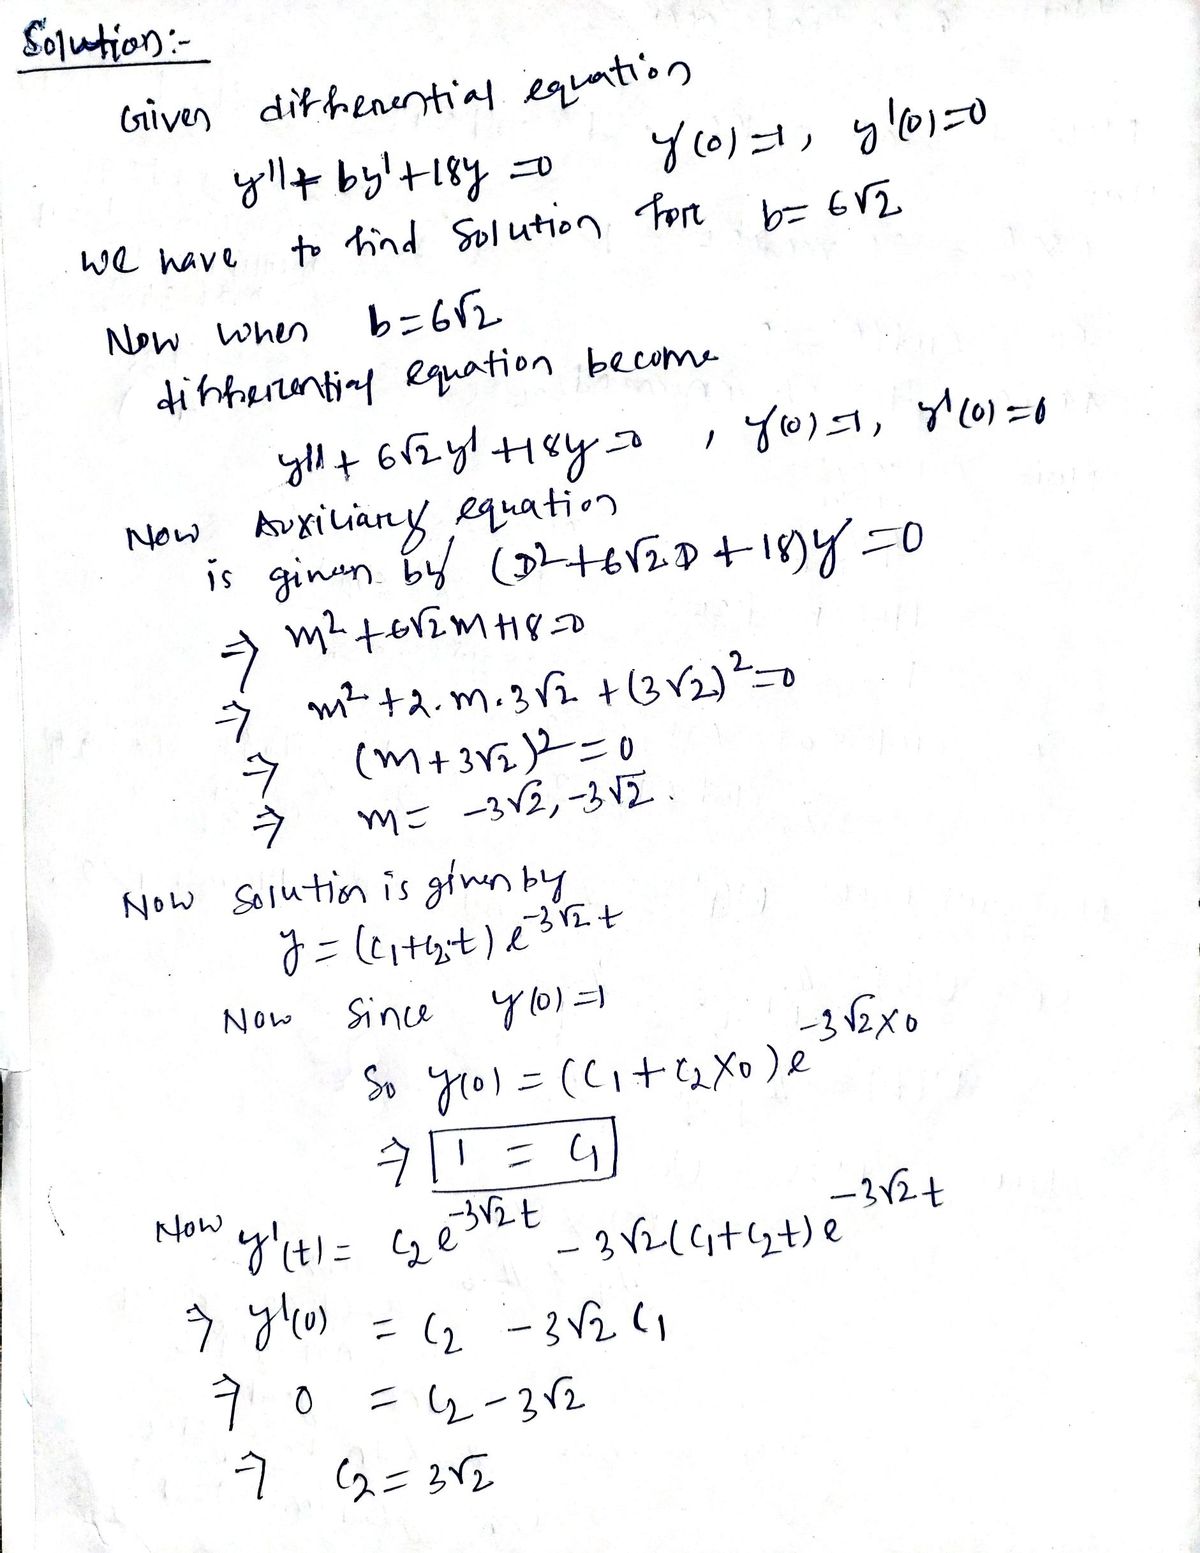 Solution:-
Given differential equation
y'' + by' + 18y = 0    y(0) = 1, y'(0) = 0
we have to find Solution for b = 6√2
Now when b = 6√2
differential equation become
y'' + 6√2 y' + 18y = 0 , y(0) = 1, y'(0) = 0
Now Auxiliary equation
is given by (D² + 6√2 D + 18)y = 0
⇒ m² + 6√2 m + 18 = 0
⇒ m² + 2·m·3√2 + (3√2)² = 0
⇒ (m + 3√2)² = 0
⇒ m = -3√2, -3√2.
Now Solution is given by
y = (c₁ + c₂t) e^{-3√2 t}
Now Since y(0) = 1
So y(0) = (c₁ + c₂×0) e^{-3√2×0}
⇒ 1 = c₁
Now y'(t) = c₂e^{-3√2t} - 3√2(c₁ + c₂t) e^{-3√2t}
⇒ y'(0) = c₂ - 3√2 c₁
⇒ 0 = c₂ - 3√2
⇒ c₂ = 3√2